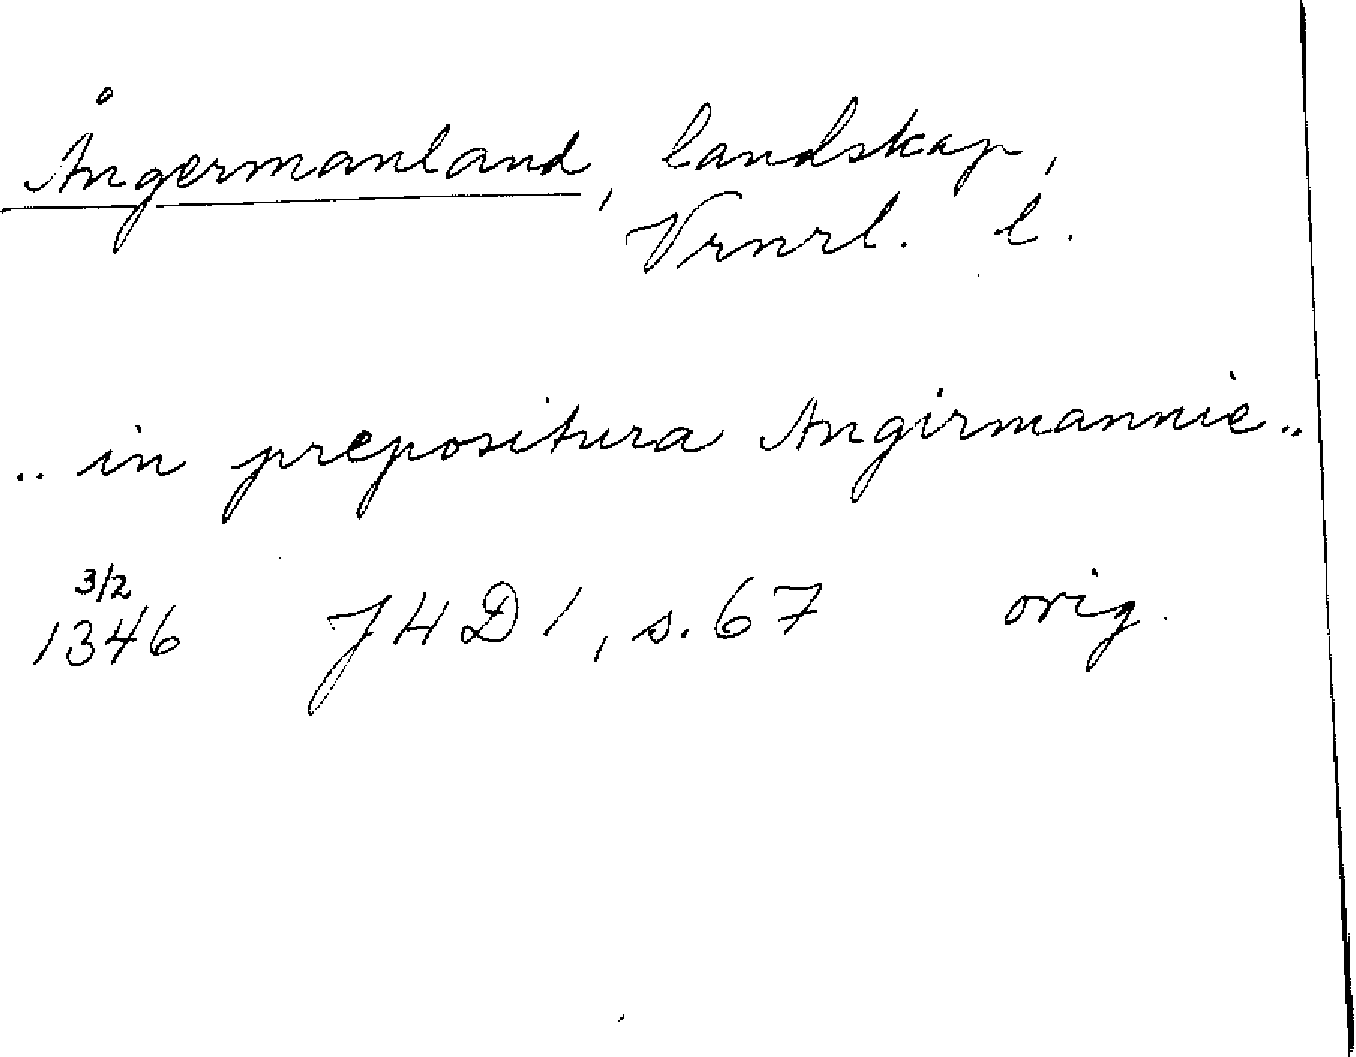 Ångermanland, landskap,
Vrnrl. l.
.. in prepositura Angirmannie ..
3/2
1346 J4D1, s. 67 orig.